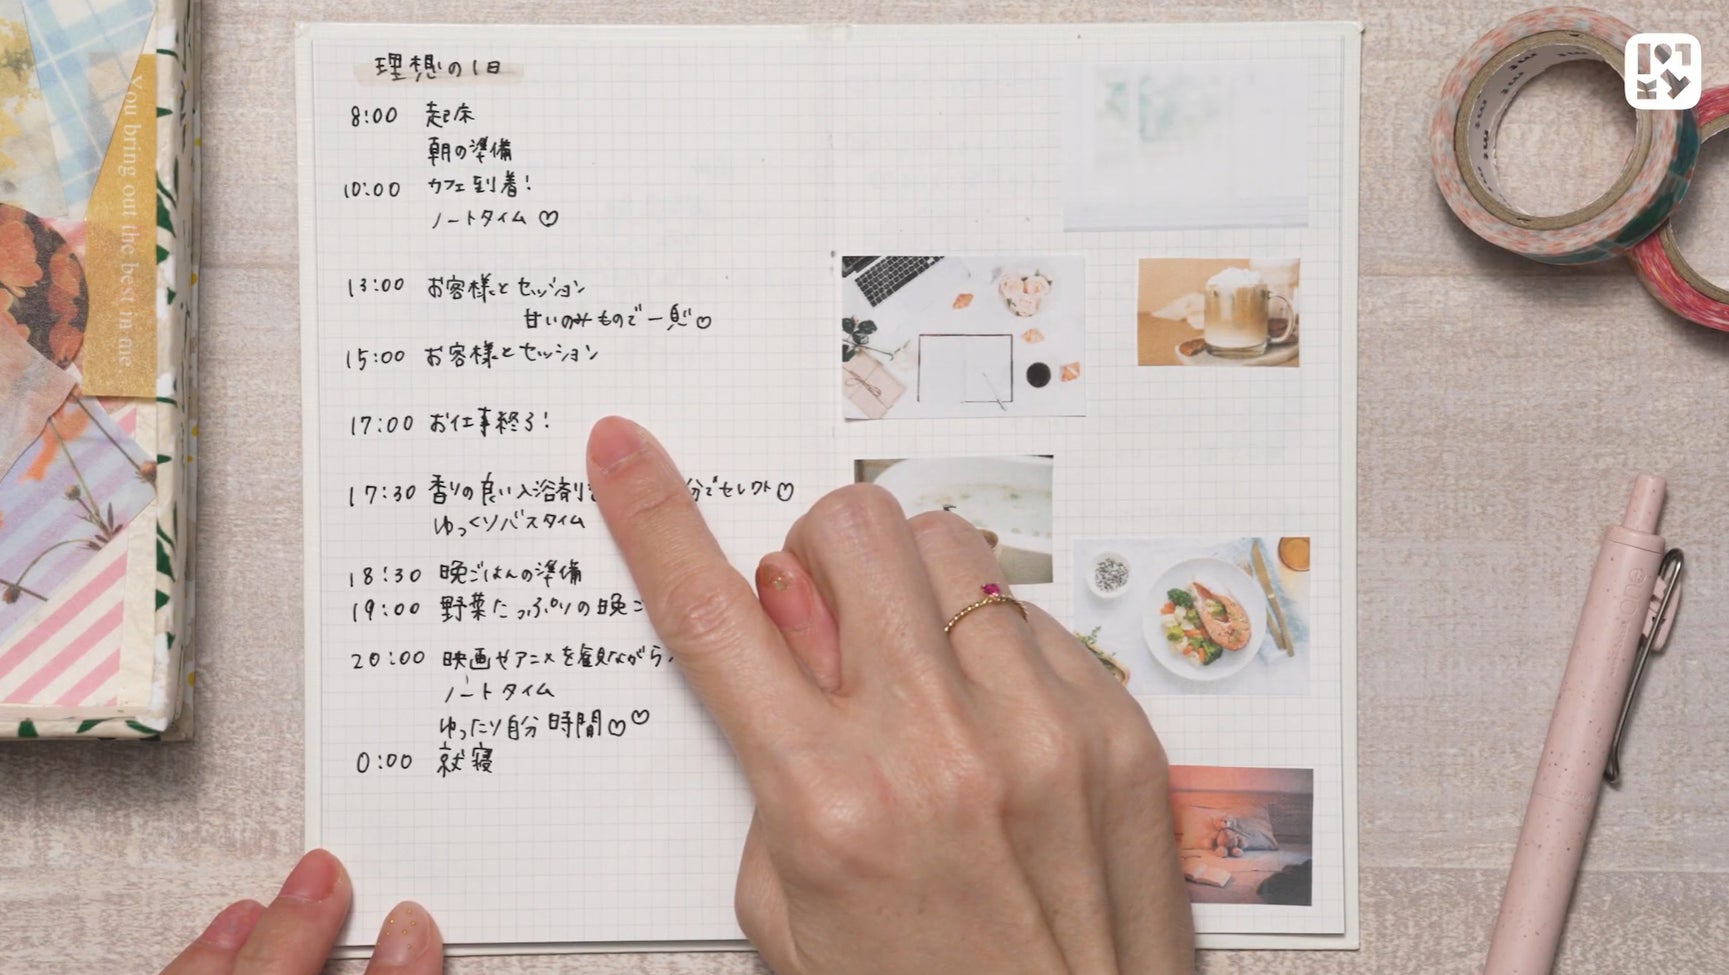 理想の1日
8:00 起床
朝の準備
10:00 カフェ到着!
ノートタイム♡
13:00 お客様とセッション
甘いのみもので一息♡
15:00 お客様とセッション
17:00 お仕事終了!
17:30 香りの良い入浴剤を 分でセレクト♡
ゆっくりバスタイム
18:30 晩ごはんの準備
19:00 野菜たっぷりの晩ご
20:00 映画やアニメを観ながら
ノートタイム
ゆったり自分時間♡♡
0:00 就寝
You bring out the best in me
mt mt mt